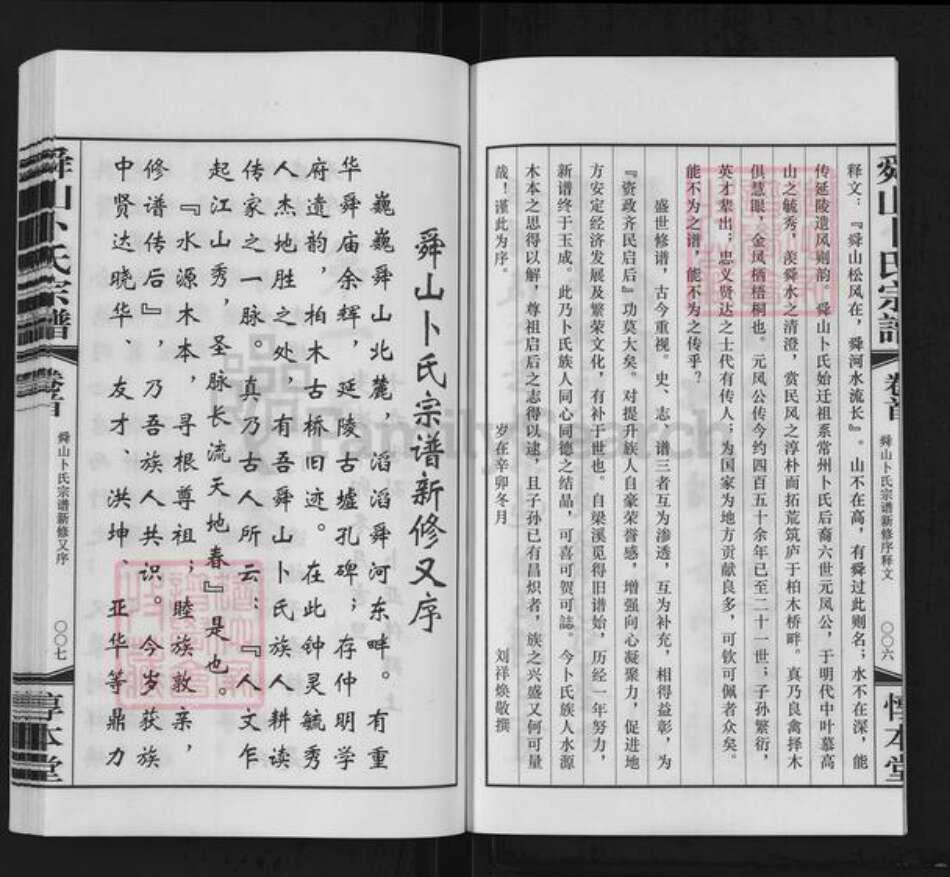 舜山卜氏宗譜
卷首
舜山卜氏宗谱新修序释文
〇〇六
惇本堂
释文：『舜山松风在，舜河水流长』。山不在高，有舜过此则名；水不在深，能
传延陵遗风则韵。舜山卜氏始迁祖系常州卜氏后裔六世元凤公，于明代中叶慕高
山之毓秀，羡舜水之清澄，赏民风之淳朴而拓荒筑庐于柏木桥畔。真乃良禽择木
俱慧眼，金凤栖梧桐也。元凤公传今约四百五十余年已至二十一世；子孙繁衍，
英才辈出；忠义贤达之士代有传人；为国家为地方贡献良多，可钦可佩者众矣。
能不为之谱，能不为之传乎？
盛世修谱，古今重视。史、志、谱三者互为渗透，互为补充，相得益彰，为
『资政齐民启后』功莫大矣。对提升族人自豪荣誉感，增强向心凝聚力，促进地
方安定经济发展及繁荣文化，有补于世也。自梁溪觅得旧谱始，历经一年努力，
新谱终于玉成。此乃卜氏族人同心同德之结晶，可喜可贺可誌。今卜氏族人水源
木本之思得以解，尊祖启后之志得以逮，且子孙已有昌炽者，族之兴盛又何可量
哉！谨此为序。
岁在辛卯冬月 刘祥焕敬撰
舜山卜氏宗谱新修又序
巍巍舜山北麓，滔滔舜河东畔。有重
华舜庙余辉，延陵古墟孔碑；存仲明学
府遗韵，柏木古桥旧迹。在此钟灵毓秀
人杰地胜之处，有吾舜山卜氏族人耕读
传家之一脉。真乃古人所云：『人文乍
起江山秀，圣脉长流天地春』是也。
『水源木本，寻根尊祖；睦族敦亲，
修谱传后』，乃吾族人共识。今岁荻族
中贤达晓华、友才、洪坤、亚华等鼎力
舜山卜氏宗譜
卷首
舜山卜氏宗谱新修又序
〇〇七
惇本堂
FamilySearch